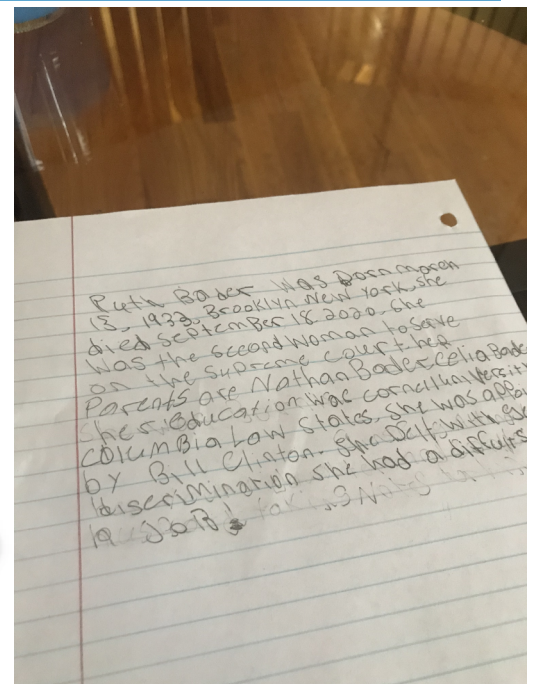 Ruth Bader was born march
15, 1933, Brooklyn New York, she
died September 18 2020. She
was the second woman to serve
on the supreme court her
Parents are Nathan Bader celia Bade
her Education was cornellum Versity
columbia Law States. She was appoi
by Bill Clinton. She Delt with
discrimination she had a
JoB!